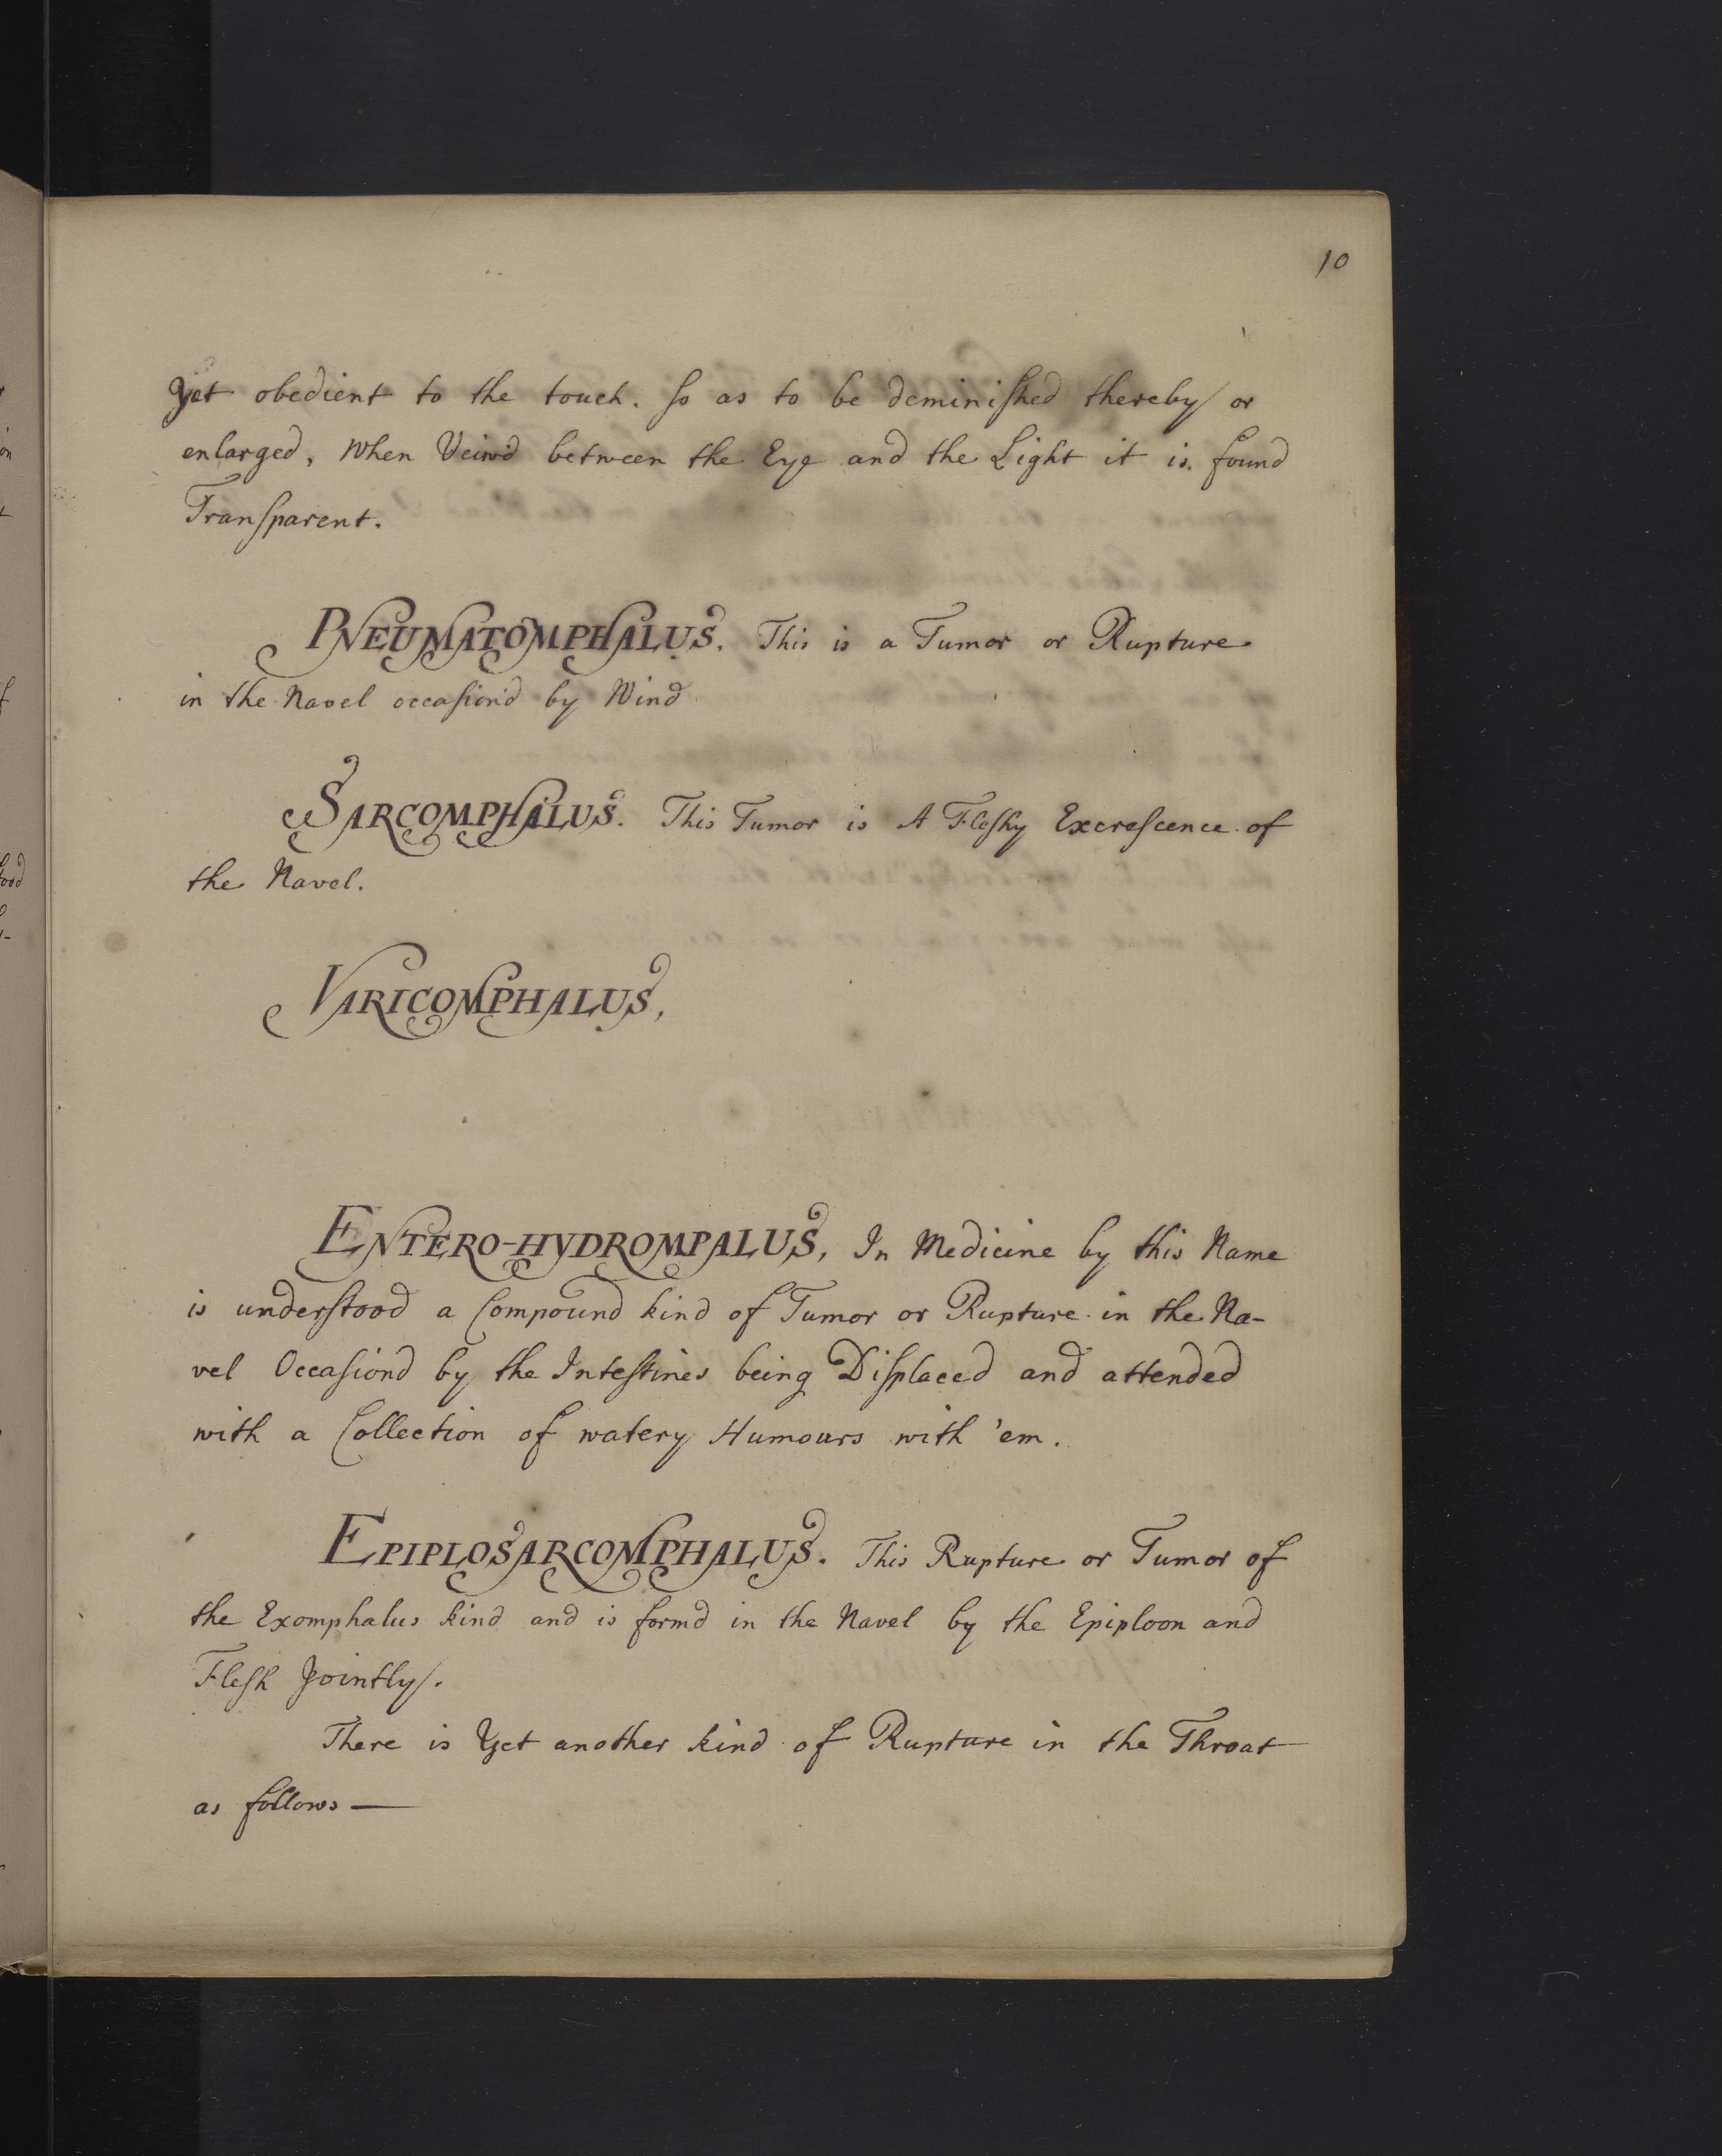 10
Yet obedient to the touch. ſo as to be deminiſhed thereby or
enlarged, When Veiw'd between the Eye and the Light it is found
Tranſparent.
PNEUMATOMPHALUS. This is a Tumor or Rupture
in the Navel occaſion'd by Wind
SARCOMPHALUS. This Tumor is A Fleſhy Excreſcence of
the Navel.
VARICOMPHALUS,
ENTERO-HYDROMPALUS, In Medicine by this Name
is underſtood a Compound kind of Tumor or Rupture in the Na-
vel Occaſiond by the Inteſtines being Diſplaced and attended
with a Collection of watery Humours with 'em.
EPIPLOSARCOMPHALUS. This Rupture or Tumor of
the Exomphalus kind and is form'd in the Navel by the Epiploon and
Fleſh Jointly.
There is Yet another kind of Rupture in the Throat
as follows —